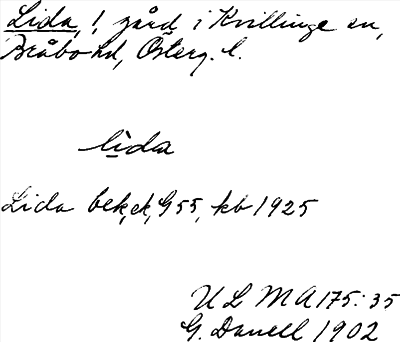 Lida, ! gård i Kvillinge sn,
Bråbo hd, Österg. l.
lìda
Lida bek, ek, G 55, kb 1925
ULMA 175:35
G. Danell 1902